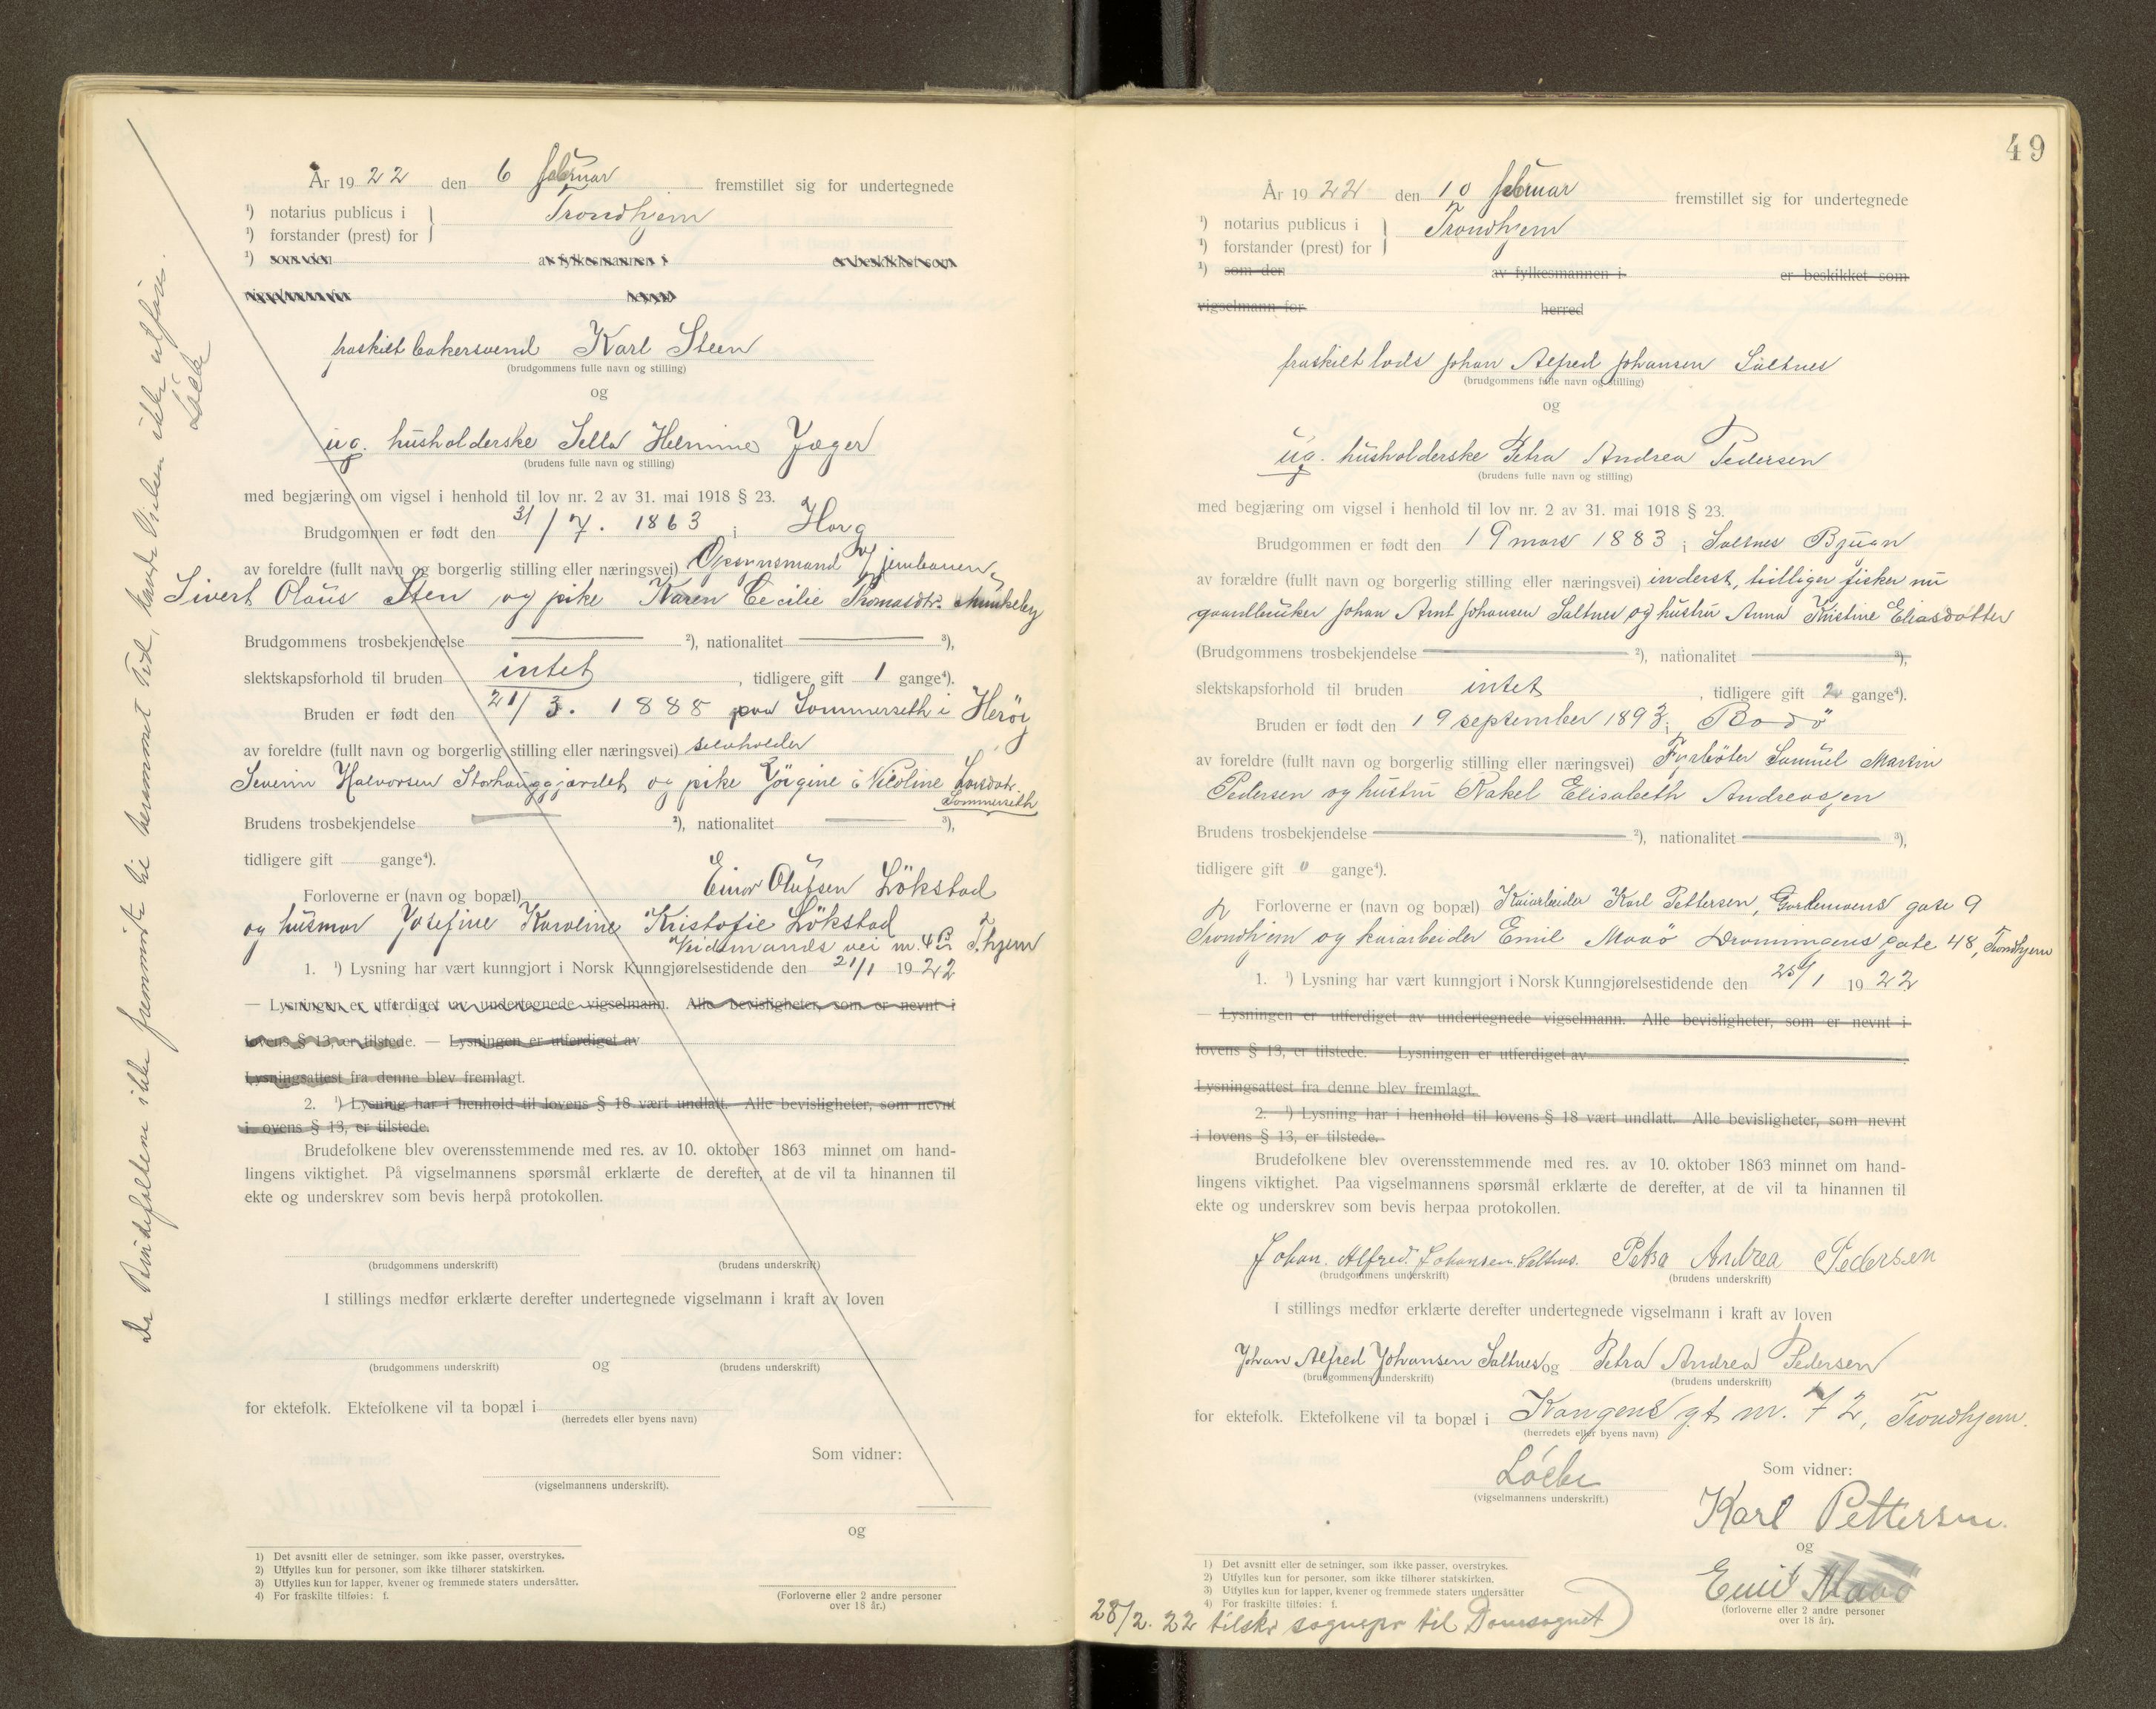 År 1922 den 6 februar fremstillet sig for undertegnede
¹) notarius publicus i
Trondhjem
¹) forstander (prest) for
¹) som den av fylkesmannen i er beskikket som
vigselmann for herred
fraskilt bakersvend Karl Steen
(brudgommens fulle navn og stilling)
og
ug. husholderske Sella Helmine Jæger
(brudens fulle navn og stilling)
med begjæring om vigsel i henhold til lov nr. 2 av 31. mai 1918 § 23.
Brudgommen er født den 31/7. 1863 i Horg
av foreldre (fullt navn og borgerlig stilling eller næringsvei) Opsynsmand v/ jernbanen
Sivert Olaus Sten og pike Karen Cecilie Thomasdtr. Munkeby
Brudgommens trosbekjendelse ²), nationalitet ³),
slektskapsforhold til bruden intet, tidligere gift 1 gange⁴).
Bruden er født den 21/3. 1888 paa Sommerseth i Herøy
av foreldre (fullt navn og borgerlig stilling eller næringsvei) selvholder
Severin Halvorsen Storhauggjærdet og pike Jörgine Nicoline Larsdatr.
Sommerseth
Brudens trosbekjendelse ²), nationalitet ³),
tidligere gift gange⁴).
Forloverne er (navn og bopæl) Einar Olufsen Lökstad
og husmor Josefine Karoline Kristofie Lökstad
Veidemands vei nr. 4 B Thjem
1. ¹) Lysning har vært kunngjort i Norsk Kunngjørelsestidende den 21/1 1922
— Lysningen er utferdiget av undertegnede vigselmann. Alle bevisligheter, som er nevnt i
lovens § 13, er tilstede. — Lysningen er utferdiget av
Lysningsattest fra denne blev fremlagt.
2. ¹) Lysning har i henhold til lovens § 18 vært undlatt. Alle bevisligheter, som nevnt
i lovens § 13, er tilstede.
Brudefolkene blev overensstemmende med res. av 10. oktober 1863 minnet om hand-
lingens viktighet. På vigselmannens spørsmål erklærte de derefter, at de vil ta hinannen til
ekte og underskrev som bevis herpå protokollen.
(brudgommens underskrift) (brudens underskrift)
I stillings medfør erklærte derefter undertegnede vigselmann i kraft av loven
og
(brudgommens underskrift) (brudens underskrift)
for ektefolk. Ektefolkene vil ta bopæl i
(herredets eller byens navn)
Som vidner:
(vigselmannens underskrift).
og
1) Det avsnitt eller de setninger, som ikke passer, overstrykes.
2) Utfylles kun for personer, som ikke tilhører statskirken.
3) Utfylles kun for lapper, kvener og fremmede staters undersåtter.
4) For fraskilte tilføies: f.
(Forloverne eller 2 andre personer
over 18 år.)
Da Brudefolkene ikke fremmøtte til berammet Tid, kunde Vielsen ikke utføres.
Löche
49
År 1922 den 10 februar fremstillet sig for undertegnede
¹) notarius publicus i
Trondhjem
¹) forstander (prest) for
¹) som den av fylkesmannen i er beskikket som
vigselmann for herred
fraskilt lods Johan Alfred Johansen Saltnes
(brudgommens fulle navn og stilling)
og
ug. husholderske Petra Andrea Pedersen
(brudens fulle navn og stilling)
med begjæring om vigsel i henhold til lov nr. 2 av 31. mai 1918 § 23.
Brudgommen er født den 19 mars 1883 i Saltnes Bjuan
av forældre (fullt navn og borgerlig stilling eller næringsvei) inderst, tidligere fisker nu
gaardbruker Johan Arnt Johansen Saltnes og hustru Anna Kristine Eliasdatter
(Brudgommens trosbekjendelse ²), nationalitet ³),
slektskapsforhold til bruden intet, tidligere gift 2 gange⁴).
Bruden er født den 19 september 1893 i Bodö
av foreldre (fullt navn og borgerlig stilling eller næringsvei) Fyrböter Samuel Martin
Pedersen og hustru Rakel Elisabeth Andreassen
Brudens trosbekjendelse ²), nationalitet ³),
tidligere gift 0 gange⁴).
Forloverne er (navn og bopæl) Kaiarbeider Karl Pettersen, gate 9
Trondhjem og kaiarbeider Emil Maaö Dronningens gate 48, Trondhjem
1. ¹) Lysning har vært kunngjort i Norsk Kunngjørelsestidende den 25/1 1922
— Lysningen er utferdiget av undertegnede vigselmann. Alle bevisligheter, som er nevnt i
lovens § 13, er tilstede. — Lysningen er utferdiget av
Lysningsattest fra denne blev fremlagt.
2. ¹) Lysning har i henhold til lovens § 18 vært undlatt. Alle bevisligheter, som nevnt
i lovens § 13, er tilstede.
Brudefolkene blev overensstemmende med res. av 10. oktober 1863 minnet om hand-
lingens viktighet. Paa vigselmannens spørsmål erklærte de derefter, at de vil ta hinannen til
ekte og underskrev som bevis herpaa protokollen.
Johan. Alfred. Johansen. Saltnes. Petra Andrea Pedersen
(brudgommens underskrift) (brudens underskrift)
I stillings medfør erklærte derefter undertegnede vigselmann i kraft av loven
Johan Alfred Johansen Saltnes og Petra Andrea Pedersen
(brudgommens underskrift) (brudens underskrift)
for ektefolk. Ektefolkene vil ta bopæl i Kongens gt nr. 72, Trondhjem.
(herredets eller byens navn)
Löche
Som vidner:
(vigselmannens underskrift.)
Karl Pettersen.
og
1) Det avsnitt eller de setninger, som ikke passer, overstrykes.
2) Utfylles kun for personer, som ikke tilhører statskirken.
3) Utfylles kun for lapper, kvener og fremmede staters undersåtter
4) For fraskilte tilføies: f.
Emil Maaö
(forloverne eller 2 andre personer
over 18 år).
28/2. 22 tilskr sognepr til Domsognet